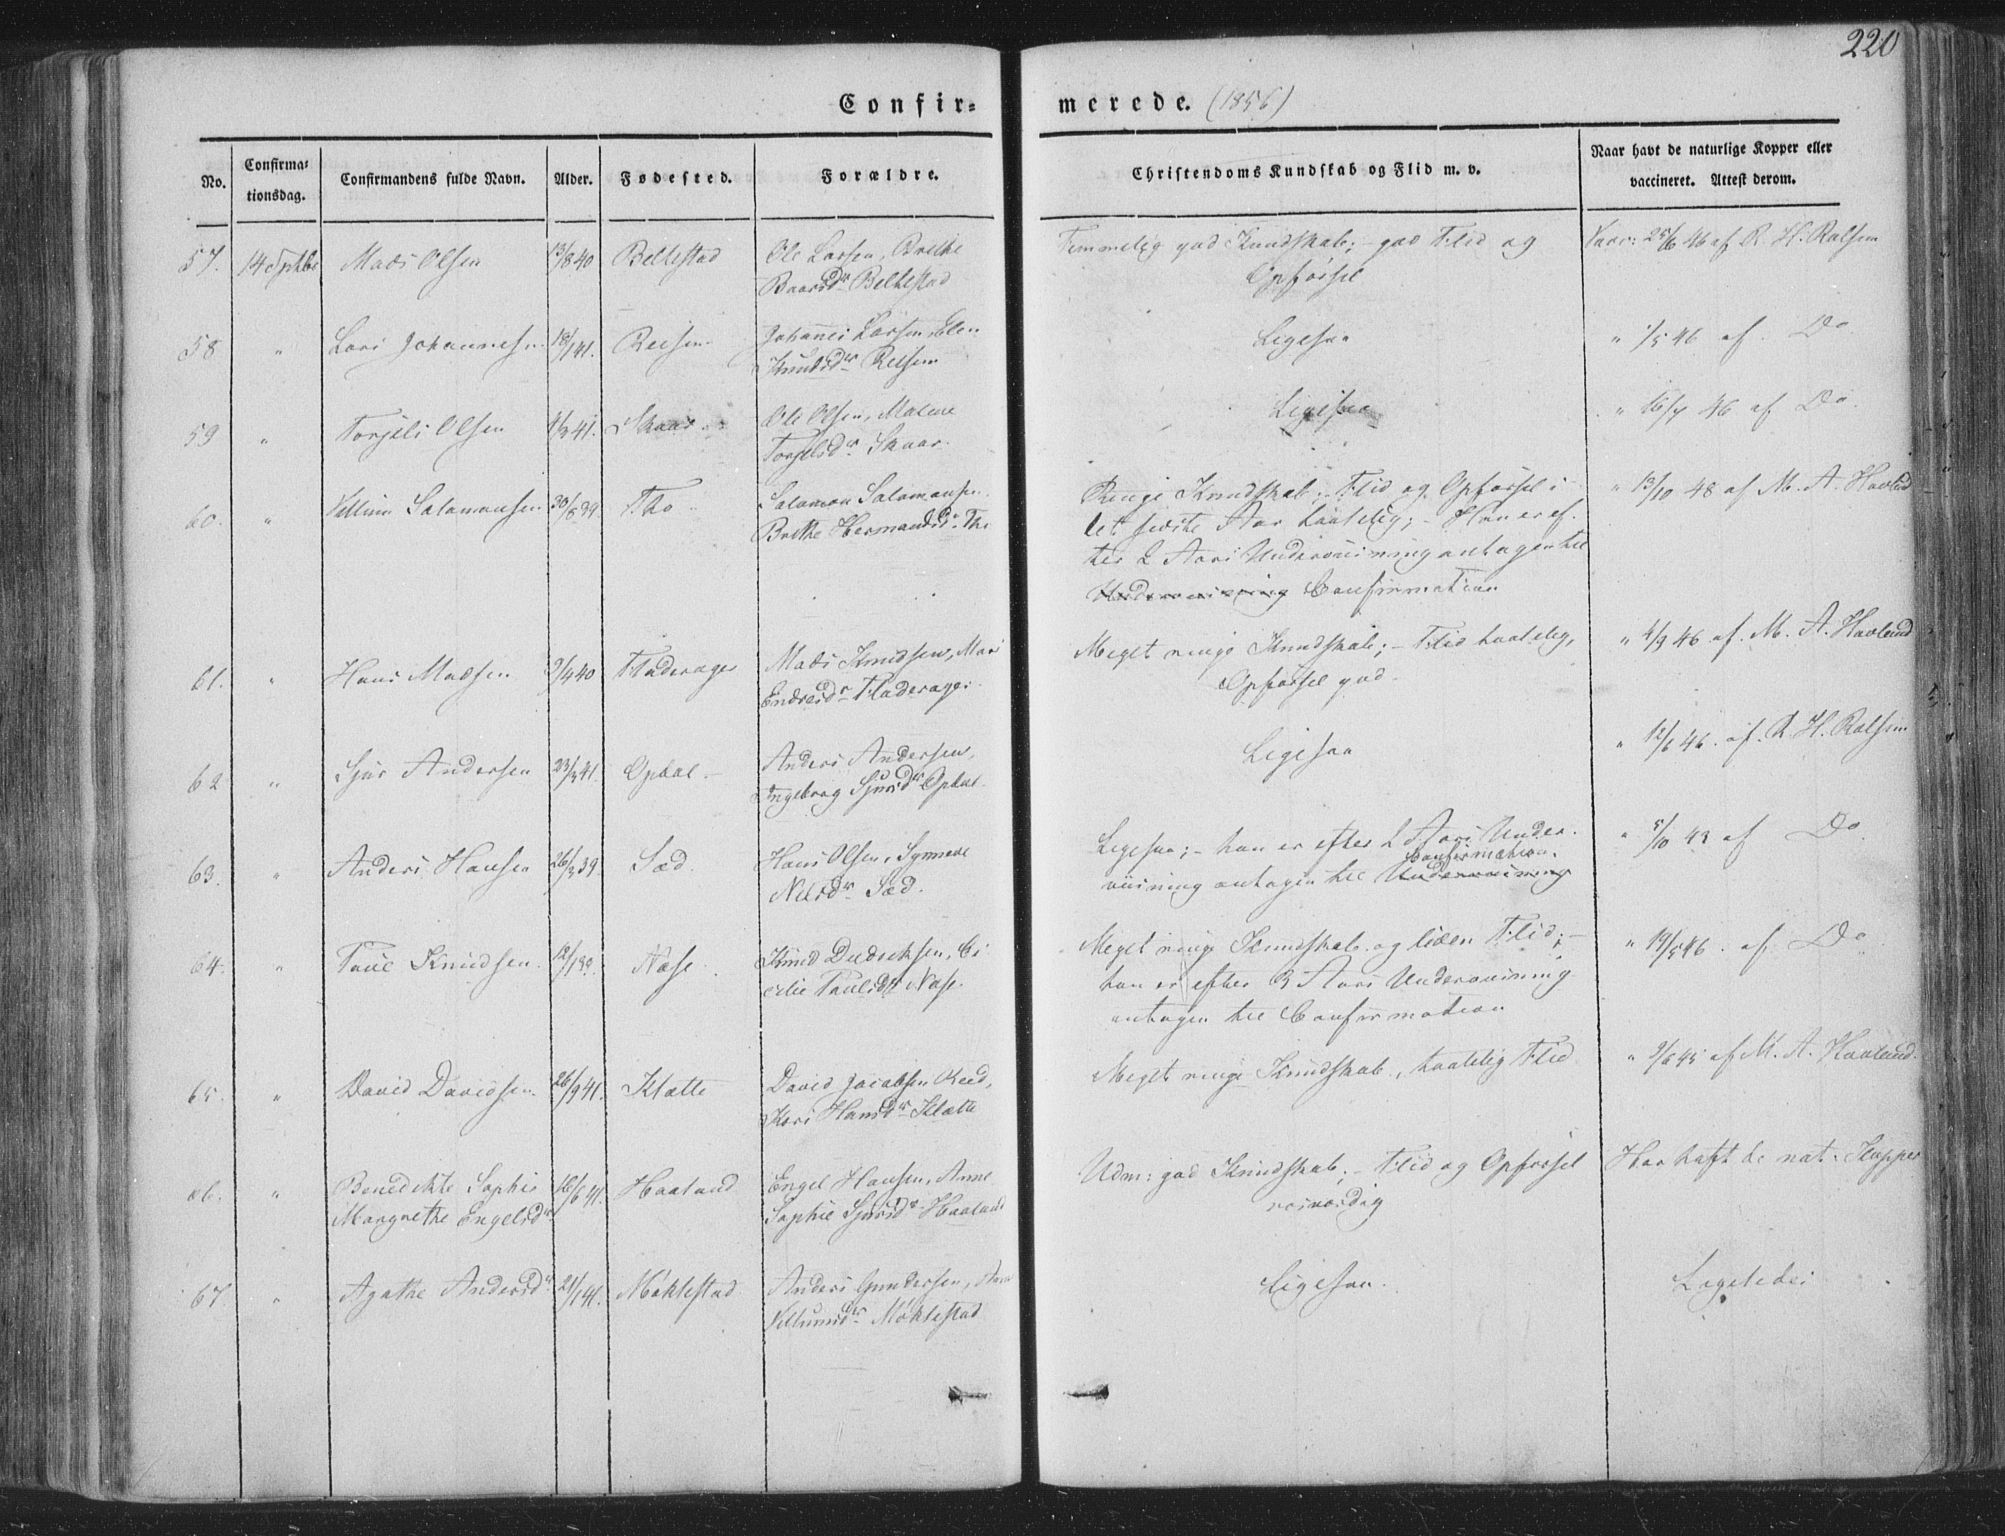 220
Confir-
merede. (1856)
No.
Confirma-
tionsdag.
Confirmandens fulde Navn.
Alder.
Fødested.
Forældre.
Christendoms Kundskab og Flid m. v.
Naar havt de naturlige Kopper eller
vaccineret. Attest derom.
57. 14 Septbr Mads Olsen 13/8 40 Beltestad Ole Larsen, Brethe
Baarsdr Beltestad
Temmelig god Kundskab; - god Flid og
Opførsel
Vacc: 25/6 46 af R. H. Ralsem
58 " Lars Johannesen 18/1 41. Reisem Johannes Larsen, Elen
Knudsdr Reisem
Ligesaa
" 1/5 46 af Do
59 " Torjels Olsen 4/3 41. Skaar Ole Olsen, Malene
Torjelsdr Skaar
Ligesaa
" 16/7 46 af Do.
60. " Villum Salamonsen 30/8 39 Tho Salamon Salamonsen
Brethe Hermandsdr Tho
Ringe Kundskab; Flid og Opførsel i
det sidste Aar taalelig; - Han er ef-
ter 2 Aars Underviisning antagen til
Underviisning Confirmation
" 13/10 48 af M. A. Havland
61. " Hans Madsen 9/4 40 Fladerager Mads Knudsen, Mari
Endresdr Fladerager
Meget ringe Kundskab; - Flid taalelig,
Opførsel god.
" 4/9 46 af. M. A. Havland
62 " Sjur Andersen 23/3 41. Opdal Anders Andersen,
Ingeborg Sjursdr Opdal
Ligesaa
" 12/6 46. af. R. H. Ralsem
63. " Anders Hansen 26/3 39. Sæd. Hans Olsen, Synneve
Nilsdr Sæd.
Ligesaa; - han er efter 2 Aars Under-
Confirmation.
viisning antagen til Underviisning
" 5/10 43 af Do
64. " Paul Knudsen 12/1 39. Næse Knud Dedreksen, Ce-
cilie Paulsdr Næse.
Meget ringe Kundskab og liden Flid; -
han er efter 3 Aars Underviisning
antagen til Confirmation
" 19/5 46. af Do
65. " David Davidsen 26/9 41. Klætte David Jacobsen Reed,
Kari Hansdr Klætte
Meget ringe Kundskab, taalelig Flid
" 9/6 45 af M. A. Havland.
66. " Benedikte Sophie 16/6 41. Haaland Engel Hansen, Anne
Margrethe Engelsdr Sophie Sjursdr Haaland
Udm: god Kundskab. - Flid og Opførsel
rosværdig
Har haft de nat: Kopper
67. " Agathe Andersdr 21/1 41. Møklestad Anders Gundersen, Anne
Villumsdr Møklestad
Ligesaa.
Ligeledes